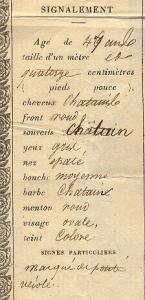 SIGNALEMENT
Age de 47 ans
taille d'un mètre et
quatorze centimètres
( pieds pouce )
cheveux Chatains
front rond
sourcils châtain
yeux gris
nez épaté
bouche moyenne
barbe Chataine
menton rond
visage ovale,
teint Coloré
SIGNES PARTICULIERS
marque de petite
vérole.